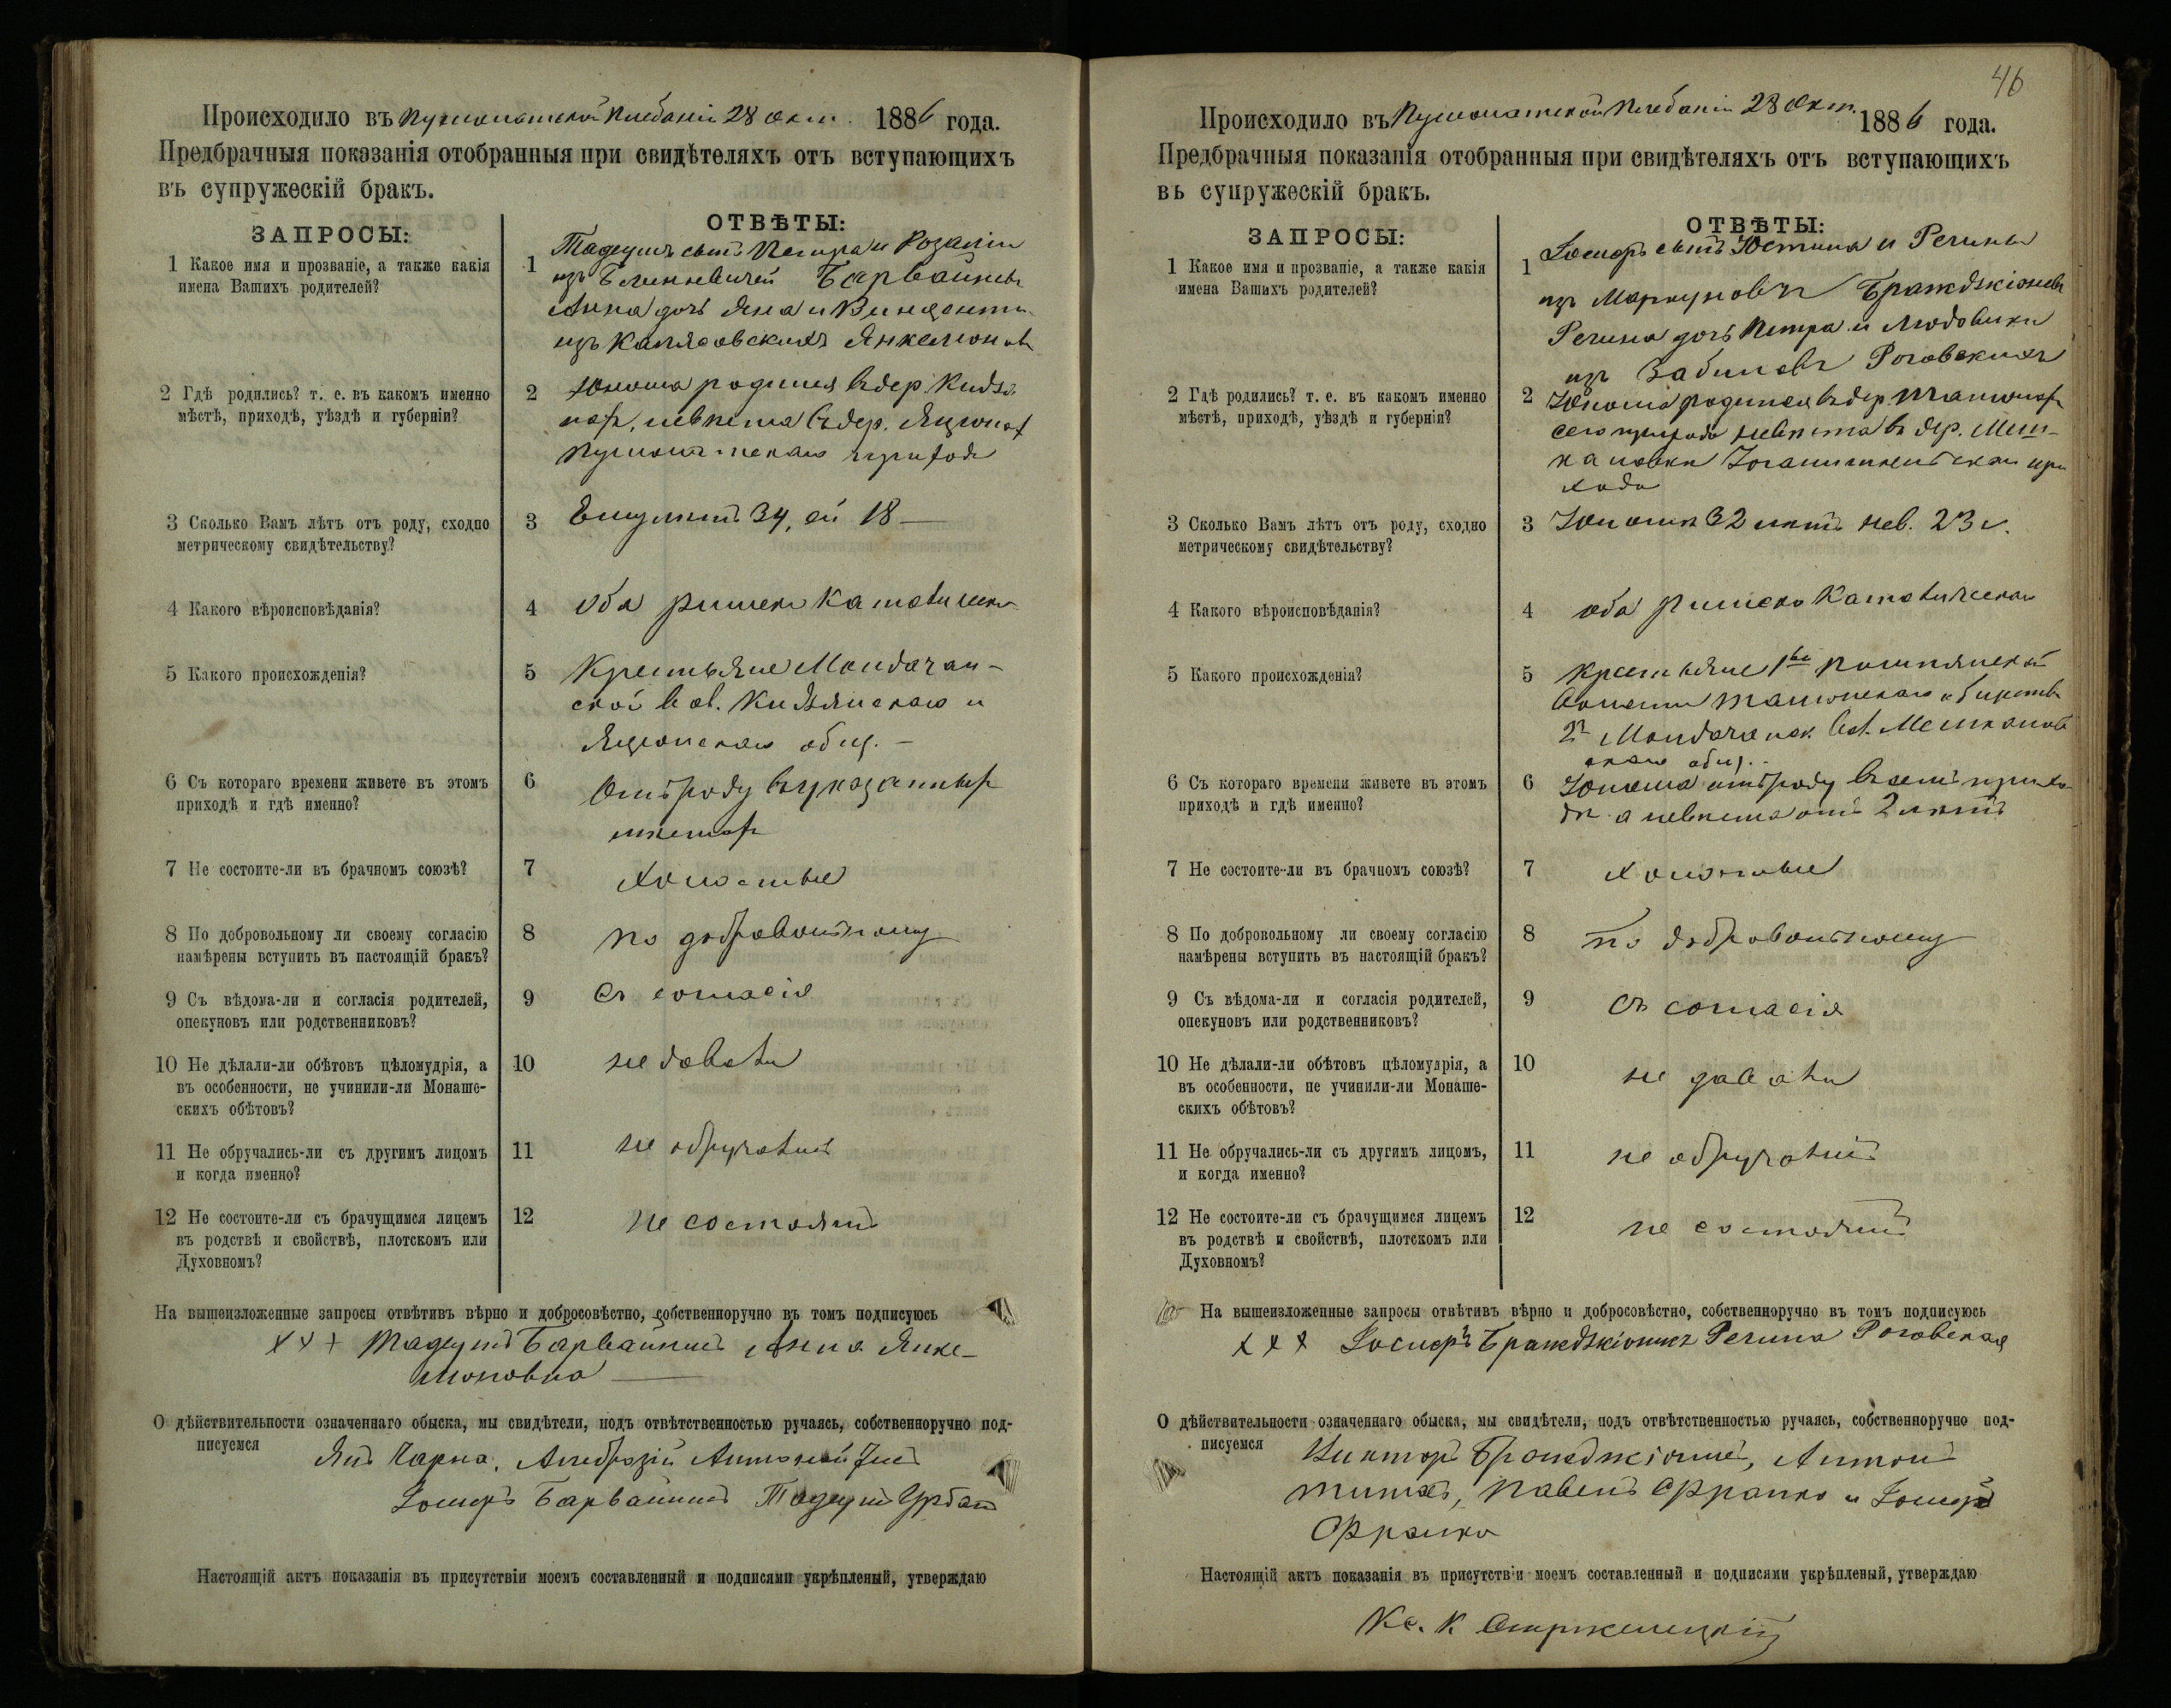 Происходило въ Пушолатской Плебаніи 28 Окт. 1886 года.
Предбрачныя показанія отобранныя при свидѣтеляхъ отъ вступающихъ
въ супружескій бракъ.
ЗАПРОСЫ:
ОТВѢТЫ:
1 Какое имя и прозваніе, а также какія
имена Вашихъ родителей?
1 Тадеушъ сынъ Петра и Розаліи
изъ Барвайнисъ
Анна дочь Яна и Винценты
изъ Каплясовскихъ Янкелюновъ
2 Гдѣ родились? т. е. въ какомъ именно
мѣстѣ, приходѣ, уѣздѣ и губерніи?
2 Юноша родился въ дер.
невѣста въ дер.
Пушолатскаго прихода
3 Сколько Вамъ лѣтъ отъ роду, сходно
метрическому свидѣтельству?
3 Ему лѣтъ 34, ей 18 —
4 Какого вѣроисповѣданія?
4 Оба римско Католическ.
5 Какого происхожденія?
5 Крестьяне
скои вол. и
общ. —
6 Съ котораго времени живете въ этомъ
приходѣ и гдѣ именно?
6 Отъ роду въ указанныхъ
мѣстахъ
7 Не состоите-ли въ брачномъ союзѣ?
7 Холостые
8 По добровольному ли своему согласію
намѣрены вступить въ настоящій бракъ?
8 по добровольному
9 Съ вѣдома-ли и согласія родителей,
опекуновъ или родственниковъ?
9 Съ согласія
10 Не дѣлали-ли обѣтовъ цѣломудрія, а
въ особенности, не учинили-ли Монаше-
скихъ обѣтовъ?
10 не давали
11 Не обручались-ли съ другимъ лицомъ
и когда именно?
11 не обручались
12 Не состоите-ли съ брачущимся лицемъ
въ родствѣ и свойствѣ, плотскомъ или
Духовномъ?
12 не состоятъ
На вышеизложенные запросы отвѣтивъ вѣрно и добросовѣстно, собственноручно въ томъ подписуюсь
× × × Тадеушъ Барвайнисъ Анна Янке-
люновна
О дѣйствительности означеннаго обыска, мы свидѣтели, подъ отвѣтственностью ручаясь, собственноручно под-
писуемся
Янъ Чарна, Амброзій
Іосифъ Барвайнисъ Тадеушъ Урбан
Настоящій актъ показанія въ присутствіи моемъ составленный и подписями укрѣпленый, утверждаю
46
Происходило въ Пушолатской Плебаніи 28 Окт. 1886 года.
Предбрачныя показанія отобранныя при свидѣтеляхъ отъ вступающихъ
въ супружескій бракъ.
ЗАПРОСЫ:
ОТВѢТЫ:
1 Какое имя и прозваніе, а также какія
имена Вашихъ родителей?
1 Іосифъ сынъ Юстина и Регины
изъ Маркуновъ
Регина дочь Петра и Людовики
изъ Роговскихъ
2 Гдѣ родились? т. е. въ какомъ именно
мѣстѣ, приходѣ, уѣздѣ и губерніи?
2 Юноша родился въ дер.
сего прихода невѣста въ дер.
при
хода
3 Сколько Вамъ лѣтъ отъ роду, сходно
метрическому свидѣтельству?
3 Юношѣ 32 лѣтъ нев. 23 г.
4 Какого вѣроисповѣданія?
4 оба римско Католическаго
5 Какого происхожденія?
5 крестьяне 1
волости общества
2
скаго общ. -
6 Съ котораго времени живете въ этомъ
приходѣ и гдѣ именно?
6 Юноша отъ роду въ семъ прихо
дѣ а невѣста отъ 2 лѣтъ
7 Не состоите-ли въ брачномъ союзѣ?
7 холостые
8 По добровольному ли своему согласію
намѣрены вступить въ настоящій бракъ?
8 по добровольному
9 Съ вѣдома-ли и согласія родителей,
опекуновъ или родственниковъ?
9 съ согласія
10 Не дѣлали-ли обѣтовъ цѣломудрія, а
въ особенности, не учинили-ли Монаше-
скихъ обѣтовъ?
10 не давали
11 Не обручались-ли съ другимъ лицомъ,
и когда именно?
11 не обручались
12 Не состоите-ли съ брачущимся лицемъ
въ родствѣ и свойствѣ, плотскомъ или
Духовномъ?
12 не состоятъ
На вышеизложенные запросы отвѣтивъ вѣрно и добросовѣстно, собственноручно въ томъ подписуюсь
× × × Іосифъ Бражджіонисъ Регина Роговская
О дѣйствительности означеннаго обыска, мы свидѣтели, подъ отвѣтственностью ручаясь, собственноручно под-
писуемся
Викторъ Бражджіонисъ, Антонъ
Павелъ Франко и Іосифъ
Франко
Настоящій актъ показанія въ присутствіи моемъ составленный и подписями укрѣпленый, утверждаю
Кс. К Стржелецкій